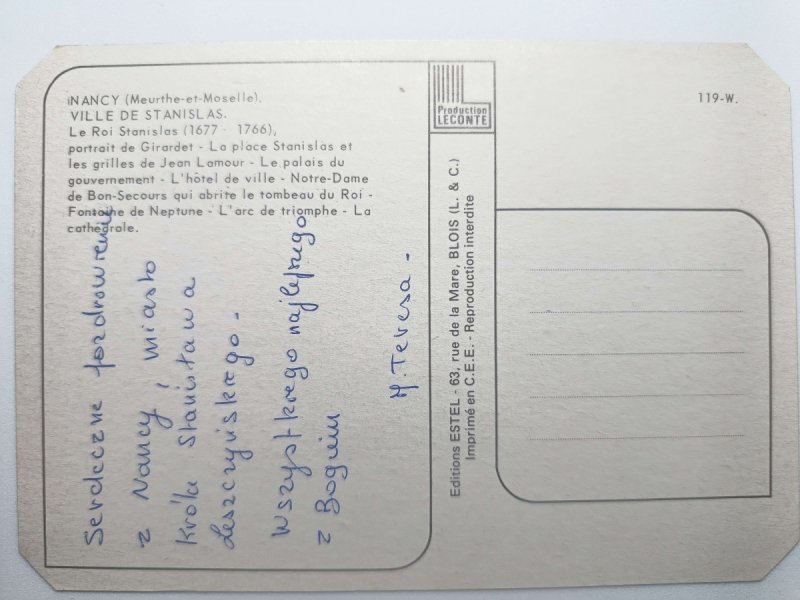 NANCY (Meurthe-et-Moselle).
VILLE DE STANISLAS.
Le Roi Stanislas (1677 - 1766),
portrait de Girardet - La place Stanislas et
les grilles de Jean Lamour - Le palais du
gouvernement - L'hôtel de ville - Notre-Dame
de Bon-Secours qui abrite le tombeau du Roi -
Fontaine de Neptune - L'arc de triomphe - La
cathédrale.
Serdeczne pozdrowienia
z Nancy, miasto
Króla Stanisława
Leszczyńskiego.
Wszystkiego najlepszego
z Bogiem
M. Teresa.
Production
LECONTE
Editions ESTEL - 63, rue de la Mare, BLOIS (L. & C.)
Imprimé en C.E.E. - Reproduction interdite
119-W.